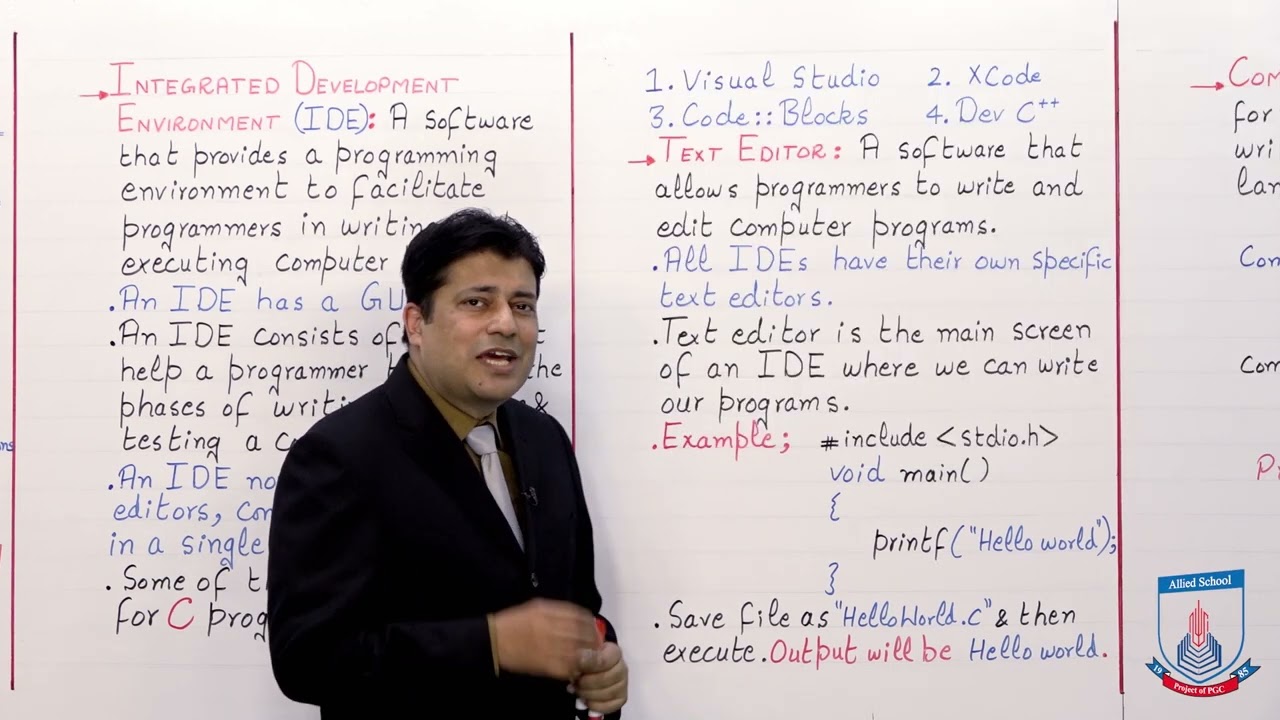 INTEGRATED DEVELOPMENT
ENVIRONMENT (IDE): A software
that provides a programming
environment to facilitate
programmers in writin
executing computer
.An IDE has a GU
.An IDE consists of
help a programmer the
phases of writi &
testing a co
.An IDE no
editors, com
in a single
. Some of t
for C prog
1. Visual Studio 2. XCode
3. Code::Blocks 4. Dev C++
TEXT EDITOR: A software that
allows programmers to write and
edit computer programs.
.All IDEs have their own specific
text editors.
.Text editor is the main screen
of an IDE where we can write
our programs.
.Example; #include <stdio.h>
void main()
{
printf("Hello world");
}
. Save file as "HelloWorld.c" & then
execute. Output will be Hello world.
COM
for
wri
lan
Com
Com
Pr
ns
Allied School
19 85
Project of PGC